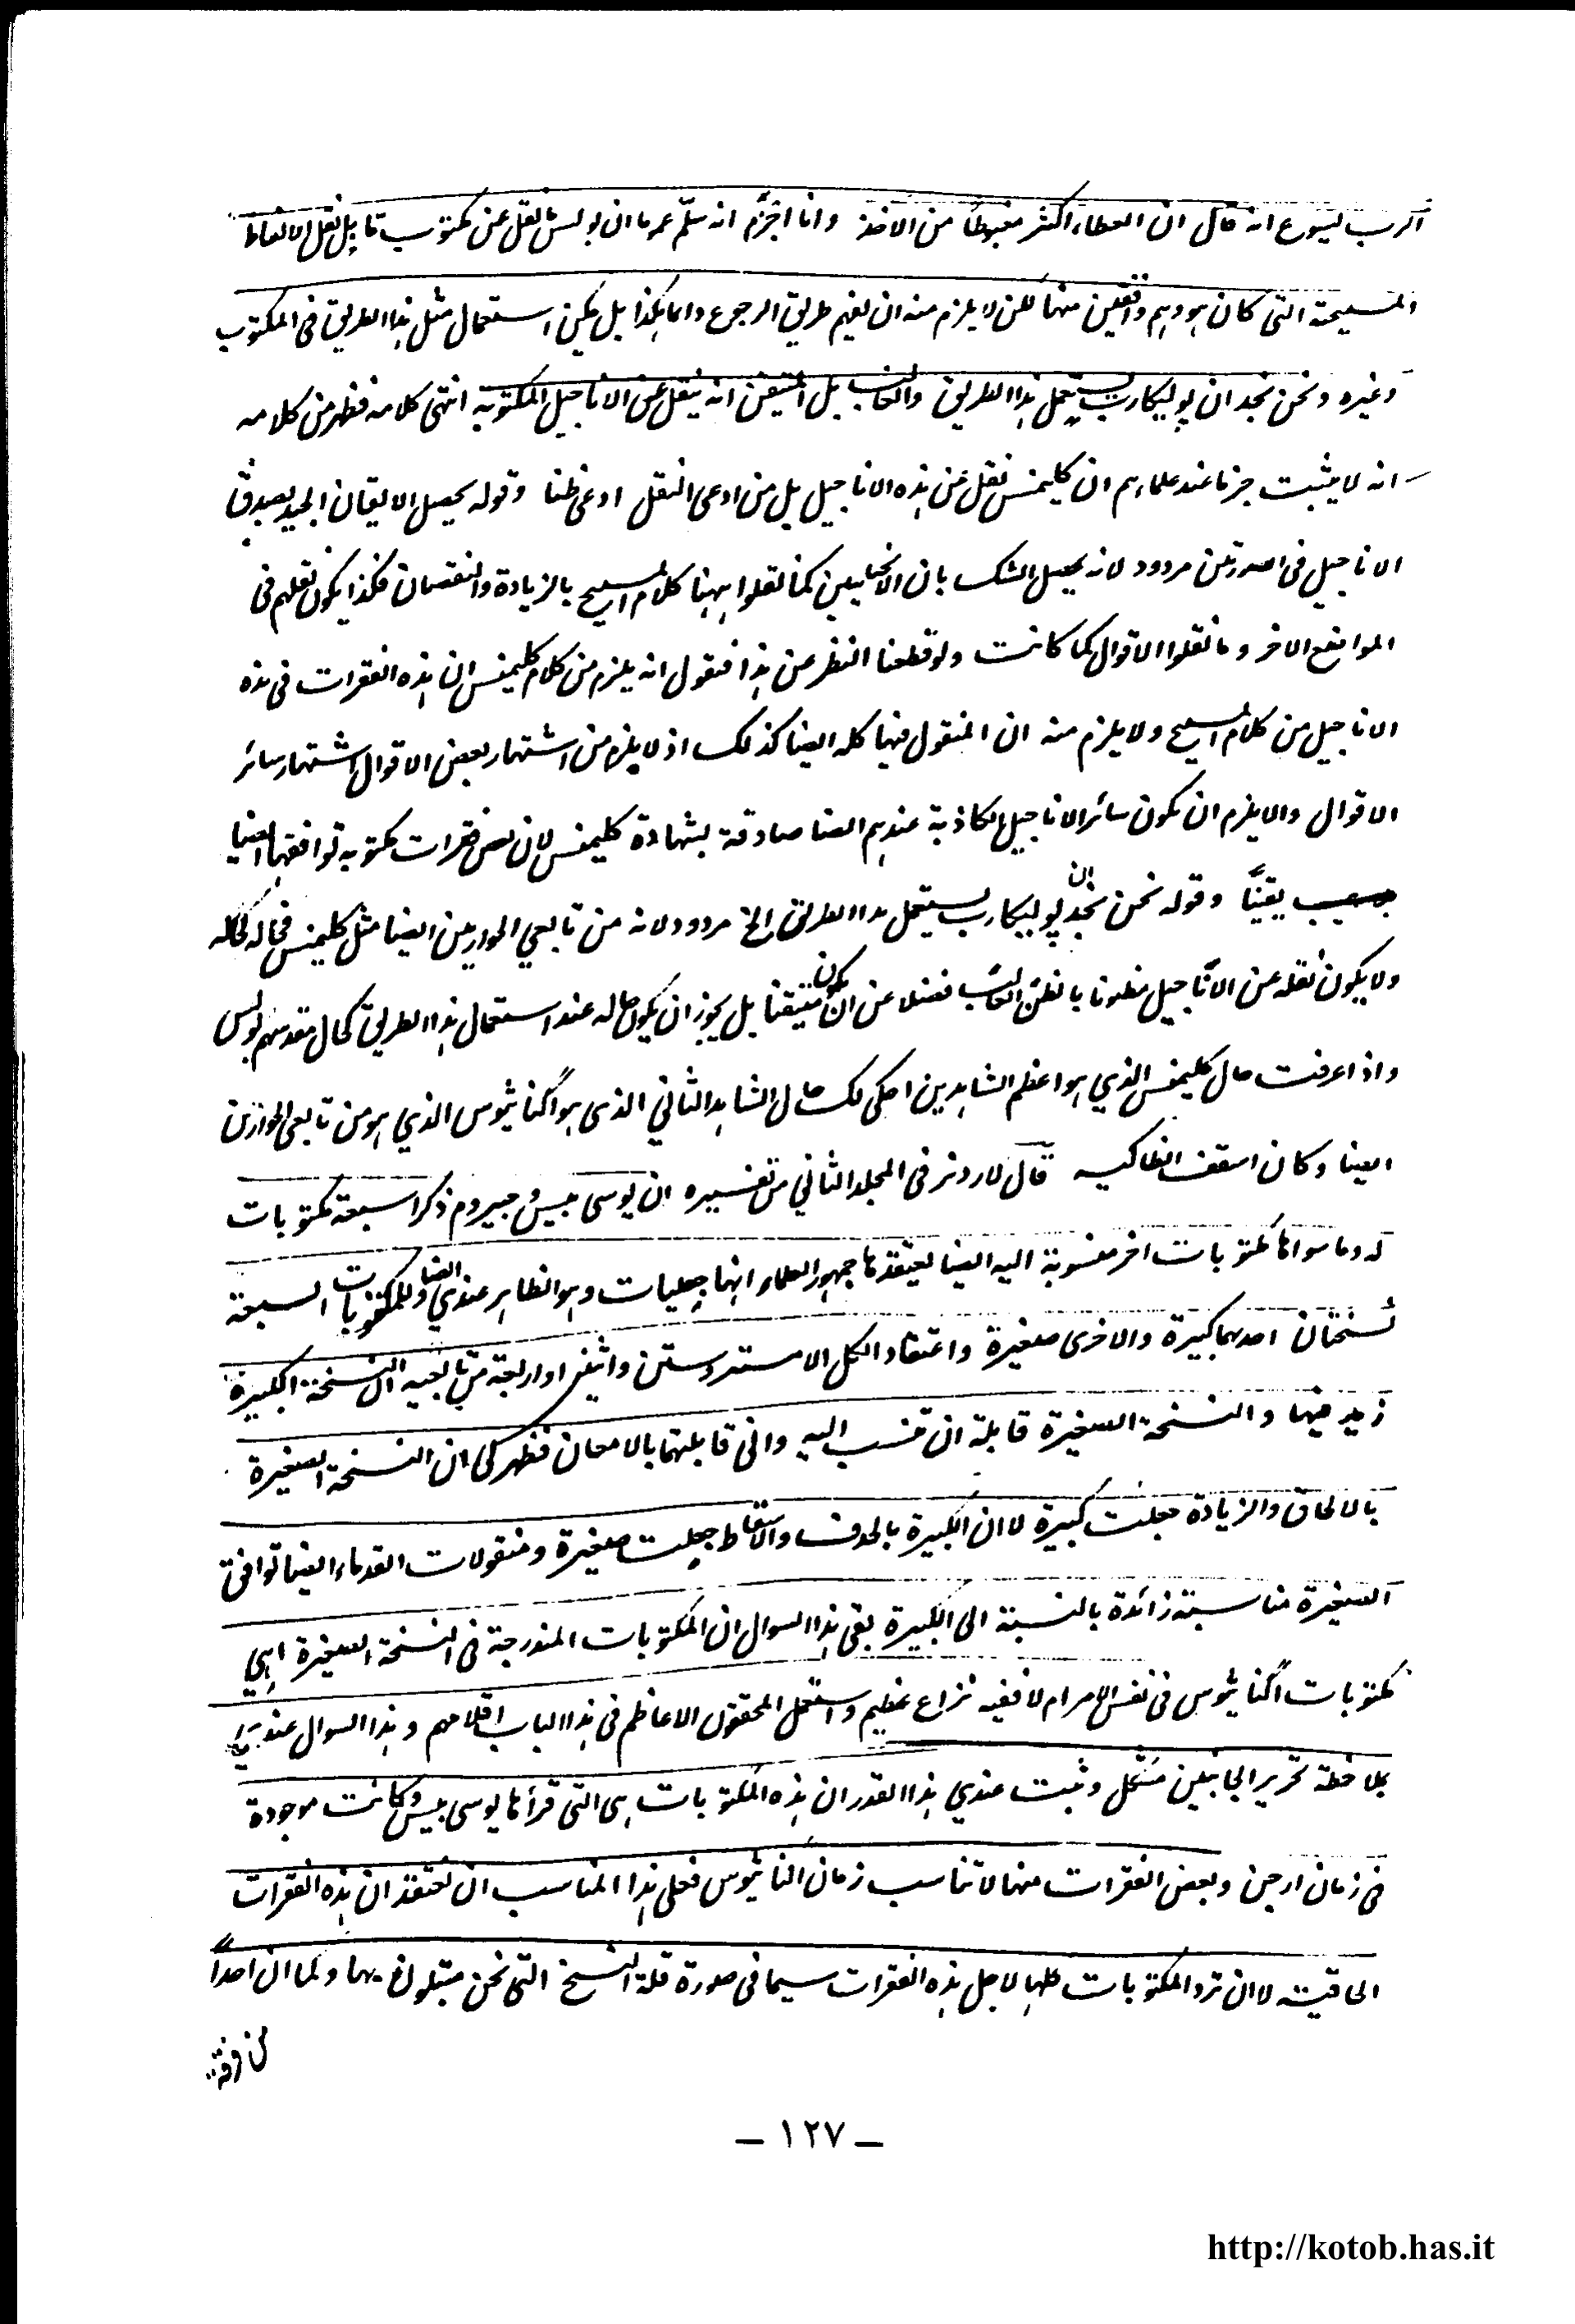 الرب ليسوع انه قال ان العطاء اكثر مغبوطا من الاخذ وانا اجزم انه سلم عموما ان بولس ما نقل عن مكتوب ما بل نقل الالفاظ
المسيحية التى كان هو وهم واقفين منها لكن لا يلزم منه ان يفهم طريق الرجوع دائما هكذا بل يمكن استعمال مثل هذا الطريق فى المكتوب
وغيره ونحن نجد ان پوليكارب يستعمل هذا الطريق والغالب بل المتيقن انه ينقل عن الاناجيل المكتوبة انتهى كلامه فظهر من كلامه
انه لا يثبت جزما عند علماءهم ان كليمنس نقل عن هذه الاناجيل بل من ادعى النقل ادعى ظنا وقوله يحصل الايقان الجيد بصدق
الاناجيل فى الصورتين مردود لانه يحصل الشك بان الانجيليين كما نقلوا ههنا كلام المسيح بالزيادة والنقصان فكذا يكون نقلهم فى
المواضع الاخر وما نقلوا الاقوال كما كانت ولو قطعنا النظر عن هذا فنقول انه يلزم من كلام كليمنس ان هذه الفقرات فى هذه
الاناجيل من كلام المسيح ولا يلزم منه ان المنقول فيها كله ايضا كذلك اذ لا يلزم من اشتهار بعض الاقوال اشتهار سائر
الاقوال والا يلزم ان يكون سائر الاناجيل الكاذبة عندهم ايضا صادقة بشهادة كليمنس لان بعض فقرات مكتوبه توافقها ايضا
يقينًا وقوله نحن نجد ان پوليكارب يستعمل هذا الطريق الخ مردود لانه من تابعي الحواريين ايضا مثل كليمنس فحاله كحاله
ولا يكون نقله عن الاناجيل مظنونا بالظن الغالب فضلا عن ان يكون متيقنا بل يجوز ان يكون حاله عند استعمال هذا الطريق كحال مقدسهم بولس
واذا عرفت حال كليمنس الذي هو اعظم الشاهدين احكى لك حال الشاهد الثاني الذى هو اگناثيوس الذي هو من تابعى الحواريين
ايضا وكان اسقف انطاكيه قال لاردنر فى المجلد الثاني من تفسيره ان يوسى بيس وجيروم ذكرا سبعة مكتوبات
له وما سواها مكتوبات اخر منسوبة اليه ايضا يعتقدها جمهور العلماء انها جعليات وهو الظاهر عندي ايضا وللمكتوبات السبعة
نسختان احدهما كبيرة والاخرى صغيرة واعتقاد الكل الا مستر وستن واثنين او اربعة من تابعيه ان النسخة الكبيرة
زيد فيها والنسخة الصغيرة قابلة ان تنسب اليه وانى قابلتهما بالامعان فظهر لى ان النسخة الصغيرة
بالالحاق والزيادة جعلت كبيرة لا ان الكبيرة بالحذف والاسقاط جعلت صغيرة ومنقولات القدماء ايضا توافق
الصغيرة مناسبة زائدة بالنسبة الى الكبيرة بقى هذا السوال ان المكتوبات المندرجة فى النسخة الصغيرة اهي
مكتوبات اگناثيوس فى نفس الامر ام لا ففيه نزاع عظيم واستعمل المحققون الاعاظم فى هذا الباب اقلامهم وهذا السوال عندي
بملاحظة تحرير الجانبين مشكل وثبت عندي هذا القدر ان هذه المكتوبات هى التى قرأها يوسى بيس وكانت موجودة
فى زمان ارجن وبعض الفقرات منها لا تناسب زمان اگناثيوس فعلى هذا المناسب ان نعتقد ان هذه الفقرات
الحاقية لا ان نرد المكتوبات كلها لاجل هذه الفقرات سيما فى صورة قلة النسخ التى نحن مبتلون بها وكما ان احداً
ـ ١٢٧ ـ
http://kotob.has.it